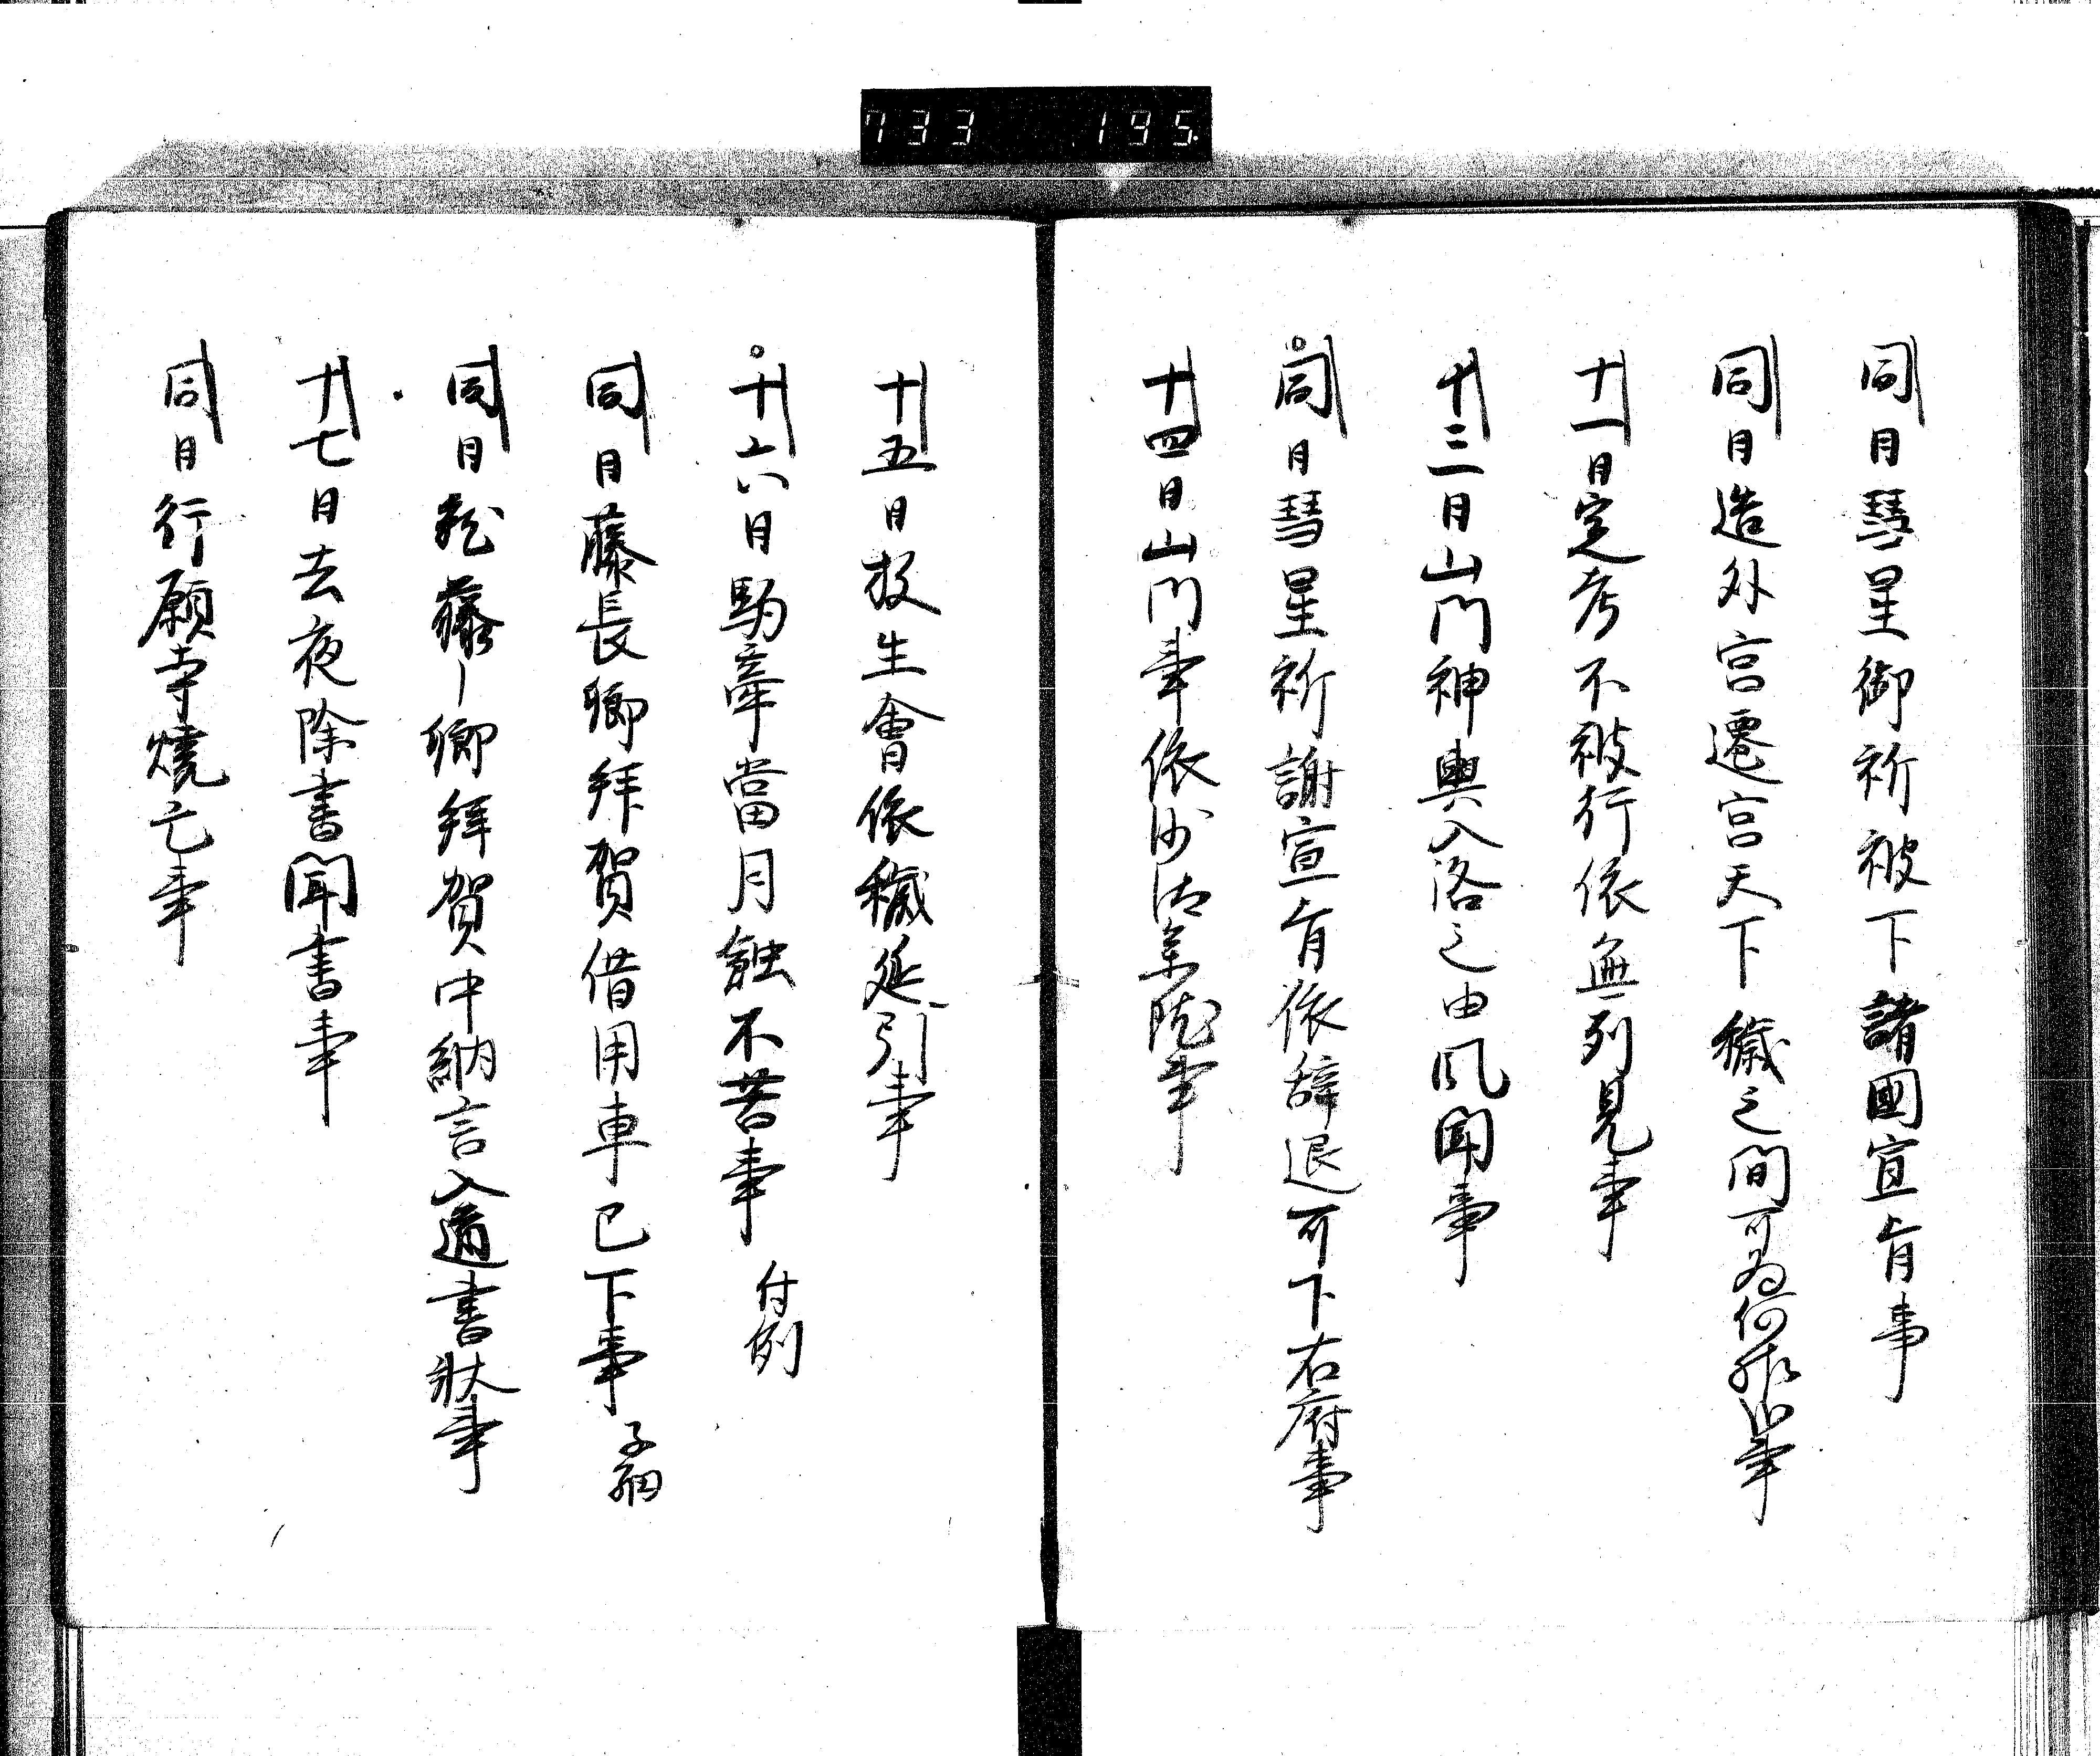 733 195
同日彗星御祈被下諸國宣旨事
同日造外宮遷宮天下穢之間可為何様哉事
十一日定考不被行依無列見事
十三日山門神輿入洛之由風聞事
同日彗星祈謝宣旨依辞退可下右府事
十四日山門事依沙汰事
十五日放生會依穢延引事
十六日駒牽當月蝕不苦事 付例
同日藤長卿拝賀借用車已下事 子細
同日藤卿拜賀中納言入道書状事
十七日去夜除書聞書事
同日行願寺燒亡事